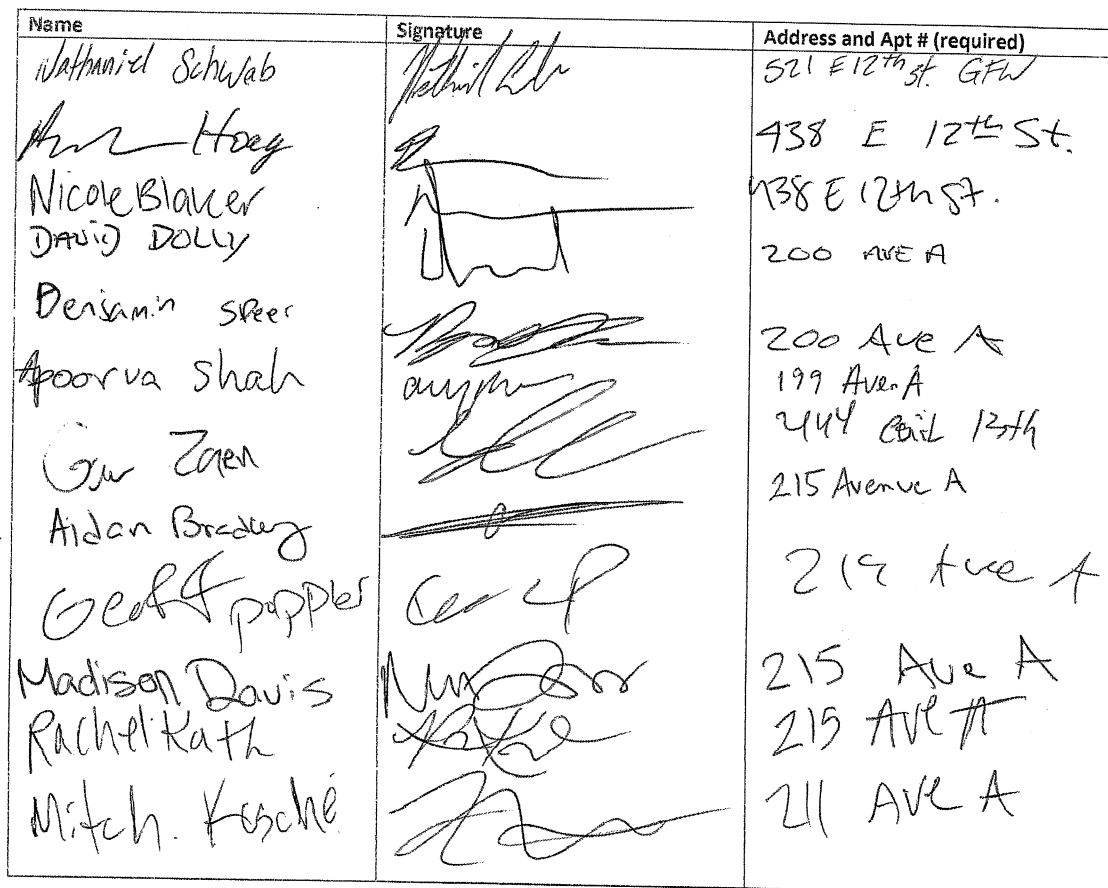 Name Signature Address and Apt # (required)
Nathaniel Schwab 521 E 12th St. GFW
Hoag 438 E 12th St.
Nicole Blaker 438 E 12th St.
DAVID DOLLY 200 AVE A
Benjamin Speer 200 Ave A
Apoorva Shah 199 Ave. A
Zaen 444 13th
Aidan Bradley 215 Avenue A
Geoff poppler 219 Ave A
Madison Davis 215 Ave A
Rachel Kath 215 Ave A
Mitch. Kosché 211 AVE A